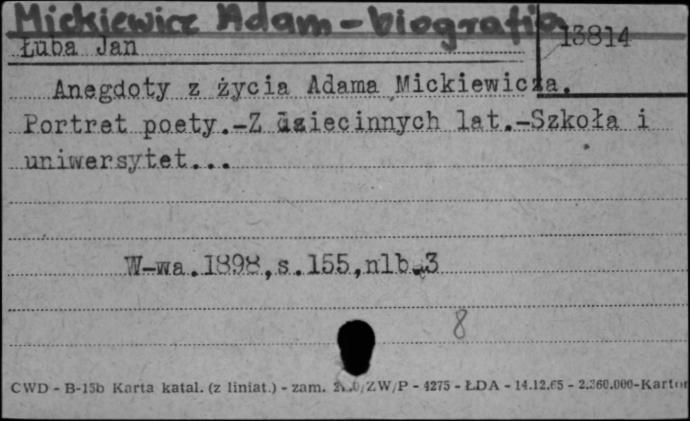 Mickiewicz Adam - biografia
Łuba Jan
13814
Anegdoty z życia Adama Mickiewicza.
Portret poety.-Z dziecinnych lat.-Szkoła i
uniwersytet...
W-wa.1898,s.155,nlb.3
8
CWD - B-15b Karta katal. (z liniat.) - zam. ZW/P - 4275 - ŁDA - 14.12.65 - 2.360.000-Karton